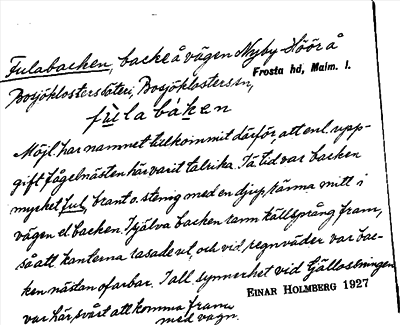 Fulabacken, backe å vägen Nyby-Höör å
Frosta hd, Malm. l.
Bosjöklosters döteri, Bosjöklosters sn,
fùla báken
Möjl. har namnet tillkommit därför, att enl. upp-
gift fågelnästen här varit talrika. I ä. tid var backen
mycket ful, brant o. stenig med en djup ränna mitt i
vägen el. backen. I själva backen rann källsprång fram,
så att kanterna rasade ut, och vid regnväder var bac-
ken nästan ofarbar. I all synnerhet vid tjällossningen
var här svårt att komma fram
med vagn.
EINAR HOLMBERG 1927